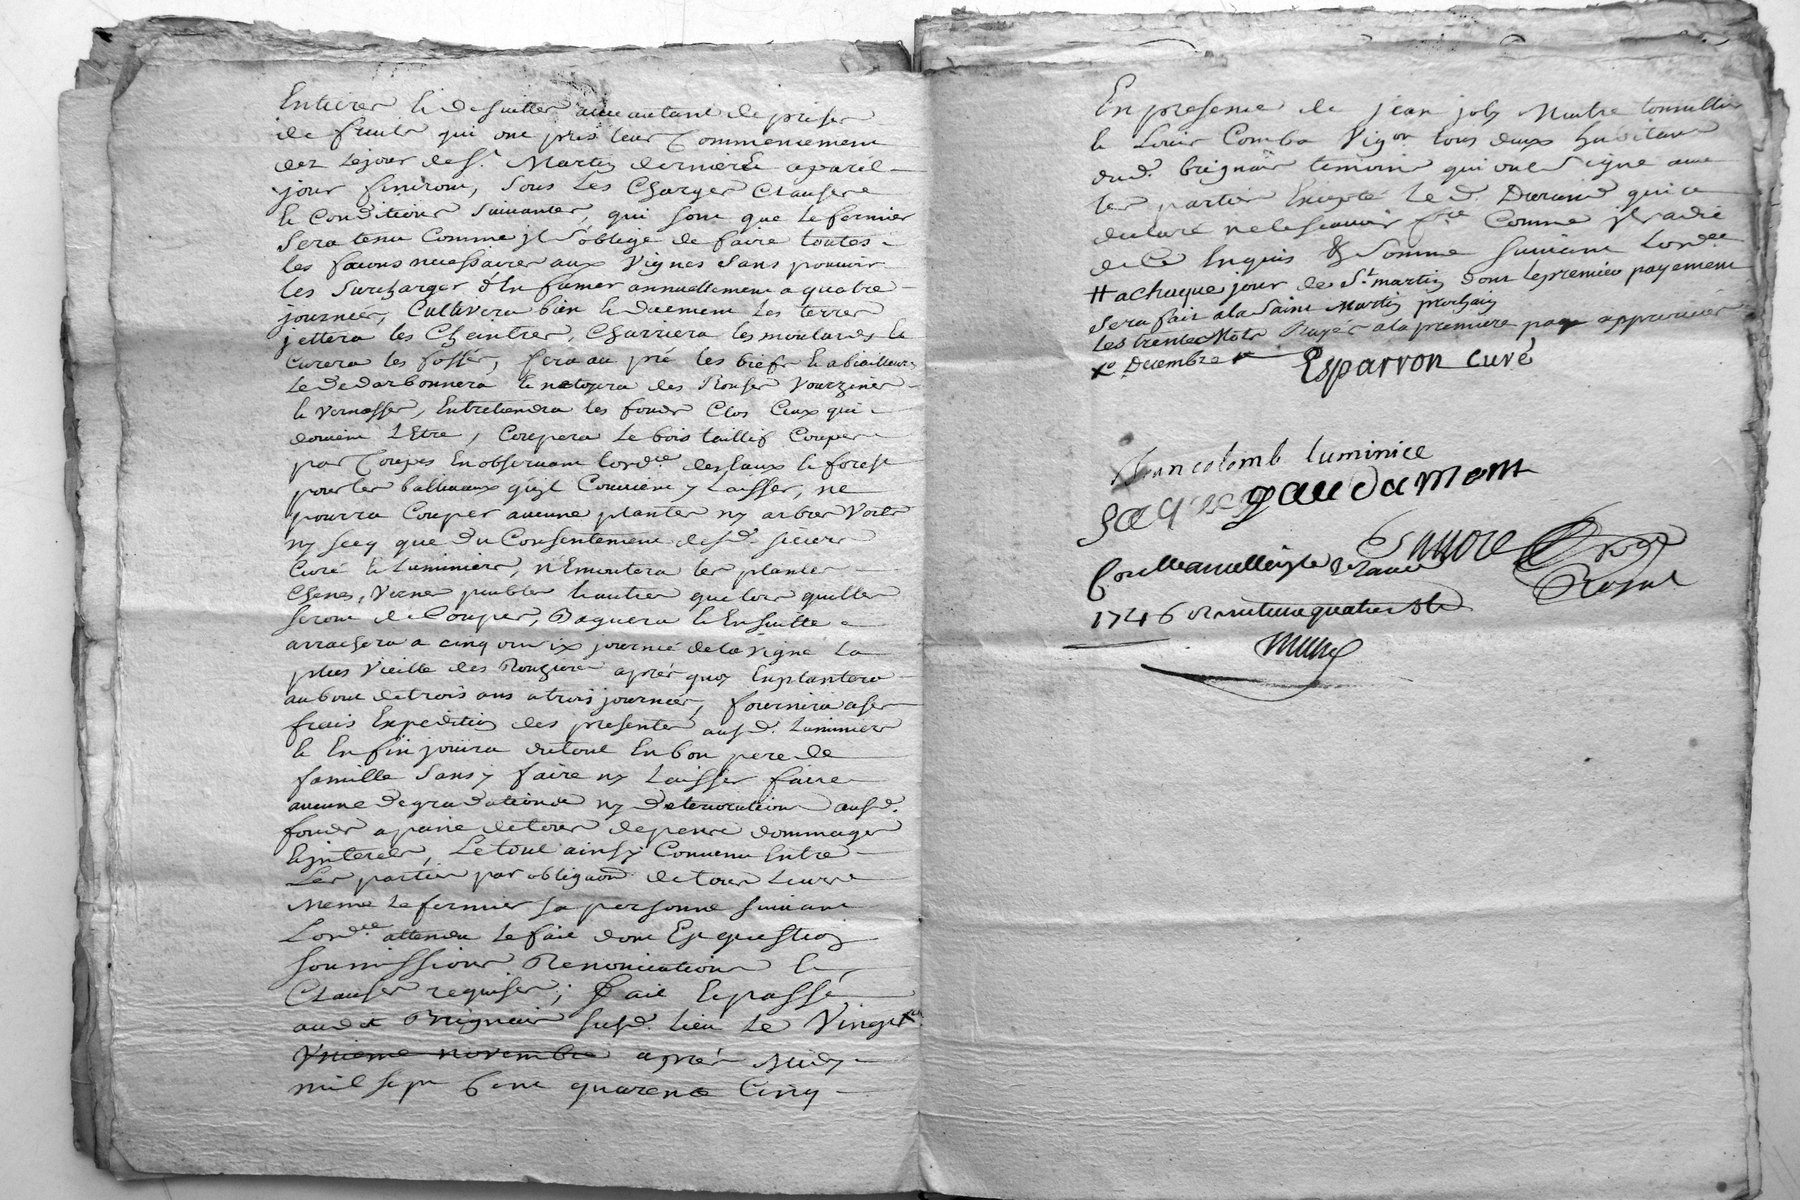 Entieres & de suitte avec autant de prises
de fruits qui ont pris leur Commencement
dez le jour de St. Martin derniere a pareil
jour finiront, sous les Charges Clauses
& Conditions suivantes, qui sont que le fermier
sera tenu Comme jl s'oblige de faire toutes
les facons necessaires aux Vignes sans pouvoir
les Surcharger d'En fumer annuellement a quatre
journées, Cultivera bien & duement les terres
jettera les Cheintres, Charriera les moulards &
curera les fossés, fera au pré les biefs
le dedarbonnera & netoyera des Ronses Vourzines
& Vernasses, Entretiendra les fonds Clos Ceux qui
doivent l'Etre, Coupera le bois taillif Coupes
par Coupes En observant l'ordce. des Eaux & forest
pour les balliveaux qu'jl Convient y Laisser, ne
pourra Couper aucune plantes ny arbres Verts
ny secq que du Consentement desd. sieurs
Curé & Luminiers, n'Emoutera les plantes
Chenes, Verne peuples & autres que lors qu'elles
seront de Couper, Baguera & Ensuitte
arrachera a cinq ou six journée de la Vigne La
plus Vieille des Rouzieres aprés quoy En plantera
au bout de trois ans a trois journées, fournira a ses
frais Expedition des presentes ausd. Luminiers
& En fin jouira du tout En bon pere de
famille sans y faire ny Laisser faire
aucune degradations ny deteriorations ausd.
fonds a peine de tous depens dommages
& jnterets, Le tout ainsy Convenu Entre
Les parties par obligaon. de tous Leurs
Meme Le fermier sa personne suivant
L'ordce. attendu Le fait dont Est question
soumissions Renonciations &
Clauses requises; fait & passé
audt Brignais susd. lieu Le Vingt
Unieme novembre aprés Midy
mil sept Cent quarente Cinq
En presence de jean joly Maitre tonnellier
& Louis Combo Vigon tous deux habitans
dud. brignais temoins qui ont signé avec
les parties Excepté Led. Durand qui a
declaré ne le scavoir fre Comme jl a dit
de Ce Enquis & somme suivant L'ordce
# a chaque jour de St. martin dont le premier payement
sera fait a la saint Martin prochain
Les trente Mots Rayés a la premiere page approuvés
x Decembre
Esparron curé
Jean colomb luminier
jaque gaudamont
Coulle a
1746